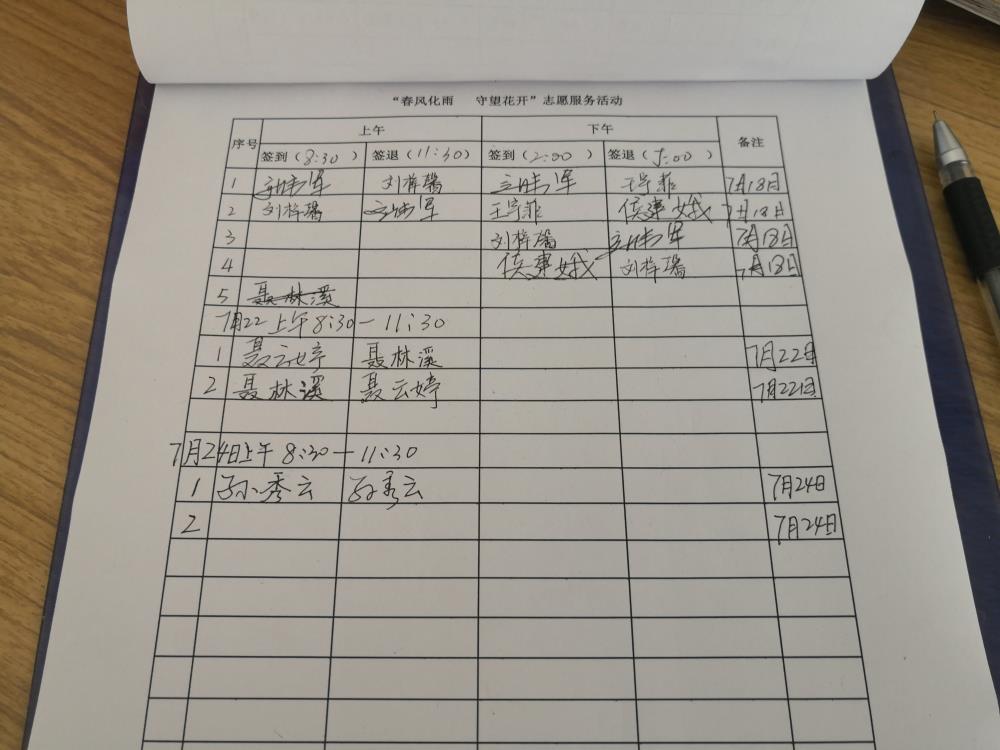 “春风化雨 守望花开”志愿服务活动
序号 上午 下午 备注
签到(8:30) 签退(11:30) 签到(2:00) 签退(5:00)
1 刘梓瑞 王宇菲 7月18日
2 刘梓瑞 王宇菲 侯建娥 7月18日
3 刘梓瑞 7月18日
4 侯建娥 刘梓瑞 7月18日
5 聂林溪
7月22上午8:30-11:30
1 聂云婷 聂林溪 7月22日
2 聂林溪 聂云婷 7月22日
7月24日上午8:30-11:30
1 孙秀云 孙秀云 7月24日
2 7月24日